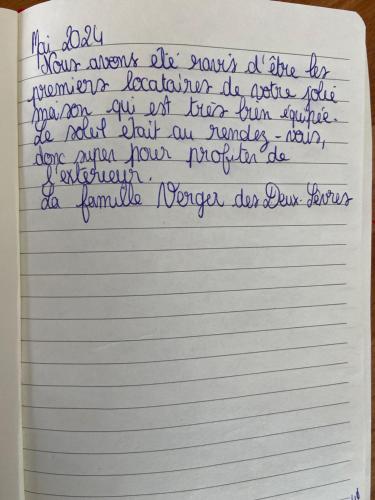 Mai 2024
Nous avons été ravis d'être les
premiers locataires de votre jolie
maison qui est très bien équipée.
Le soleil était au rendez-vous,
donc super pour profiter de
l'extérieur.
La famille Verger des Deux-Sèvres